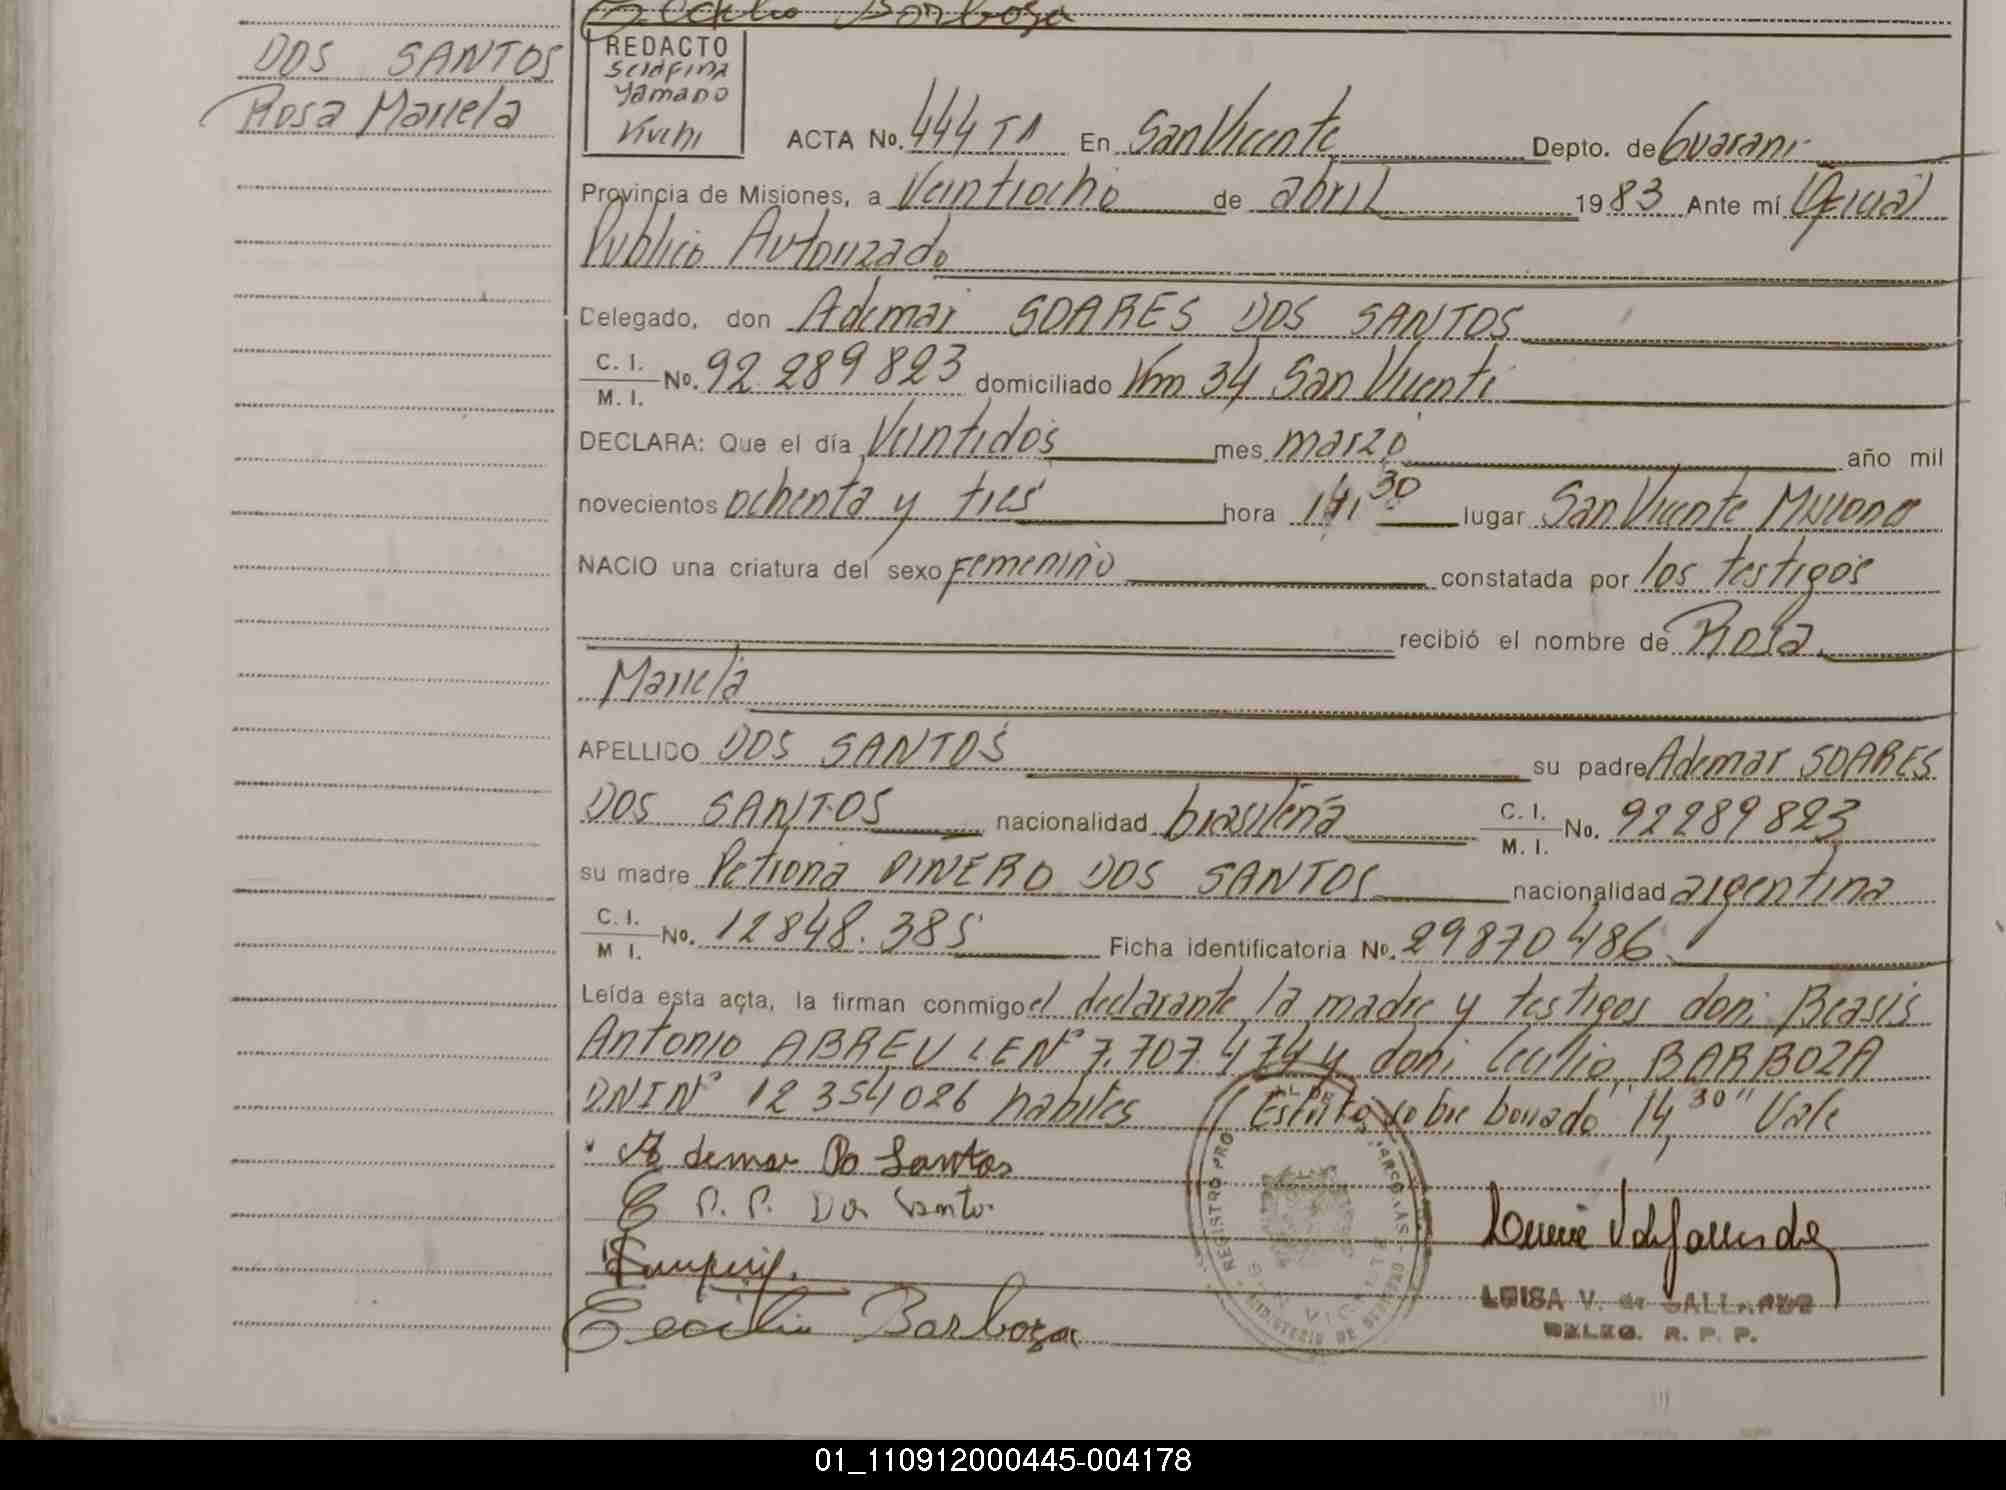 Cecilio Barboza
DOS SANTOS
Rosa Mariela
REDACTO
Yamano
ACTA No. 444 TA En San Vicente Depto. de Guarani
Provincia de Misiones, a Veintiocho de abril 1983 Ante mí Oficial
Publico Autorizado
Delegado, don Ademar SOARES DOS SANTOS
C. I.
M. I. No. 92.289823 domiciliado Km 34 San Vicente
DECLARA: Que el día Veintidos mes marzo año mil
novecientos ochenta y tres hora 14 30 lugar San Vicente Misiones
NACIO una criatura del sexo femenino constatada por los testigos
recibió el nombre de Rosa
Mariela
APELLIDO DOS SANTOS su padre Ademar SOARES
DOS SANTOS nacionalidad brasileña C. I.
M. I. No. 92289823
su madre Petrona PINERO DOS SANTOS nacionalidad argentina
C. I.
M I. No. 12848.385 Ficha identificatoria No. 29870486
Leída esta acta, la firman conmigo el declarante, la madre y testigos don: Beasis
Antonio ABREU LE Nº 7.707.474 y don: Cecilio BARBOZA
DNI Nº 12354026 habiles Escrito sobre borrado "14,30" Vale
Ademar Do Santos
P. P. Do Santo
Cecilio Barboza
REGISTRO PRO
SAN VICENTE
MINISTERIO DE GOBIERNO
LUISA V. de GALLARDO
DELEG. R. P. P.
01_110912000445-004178